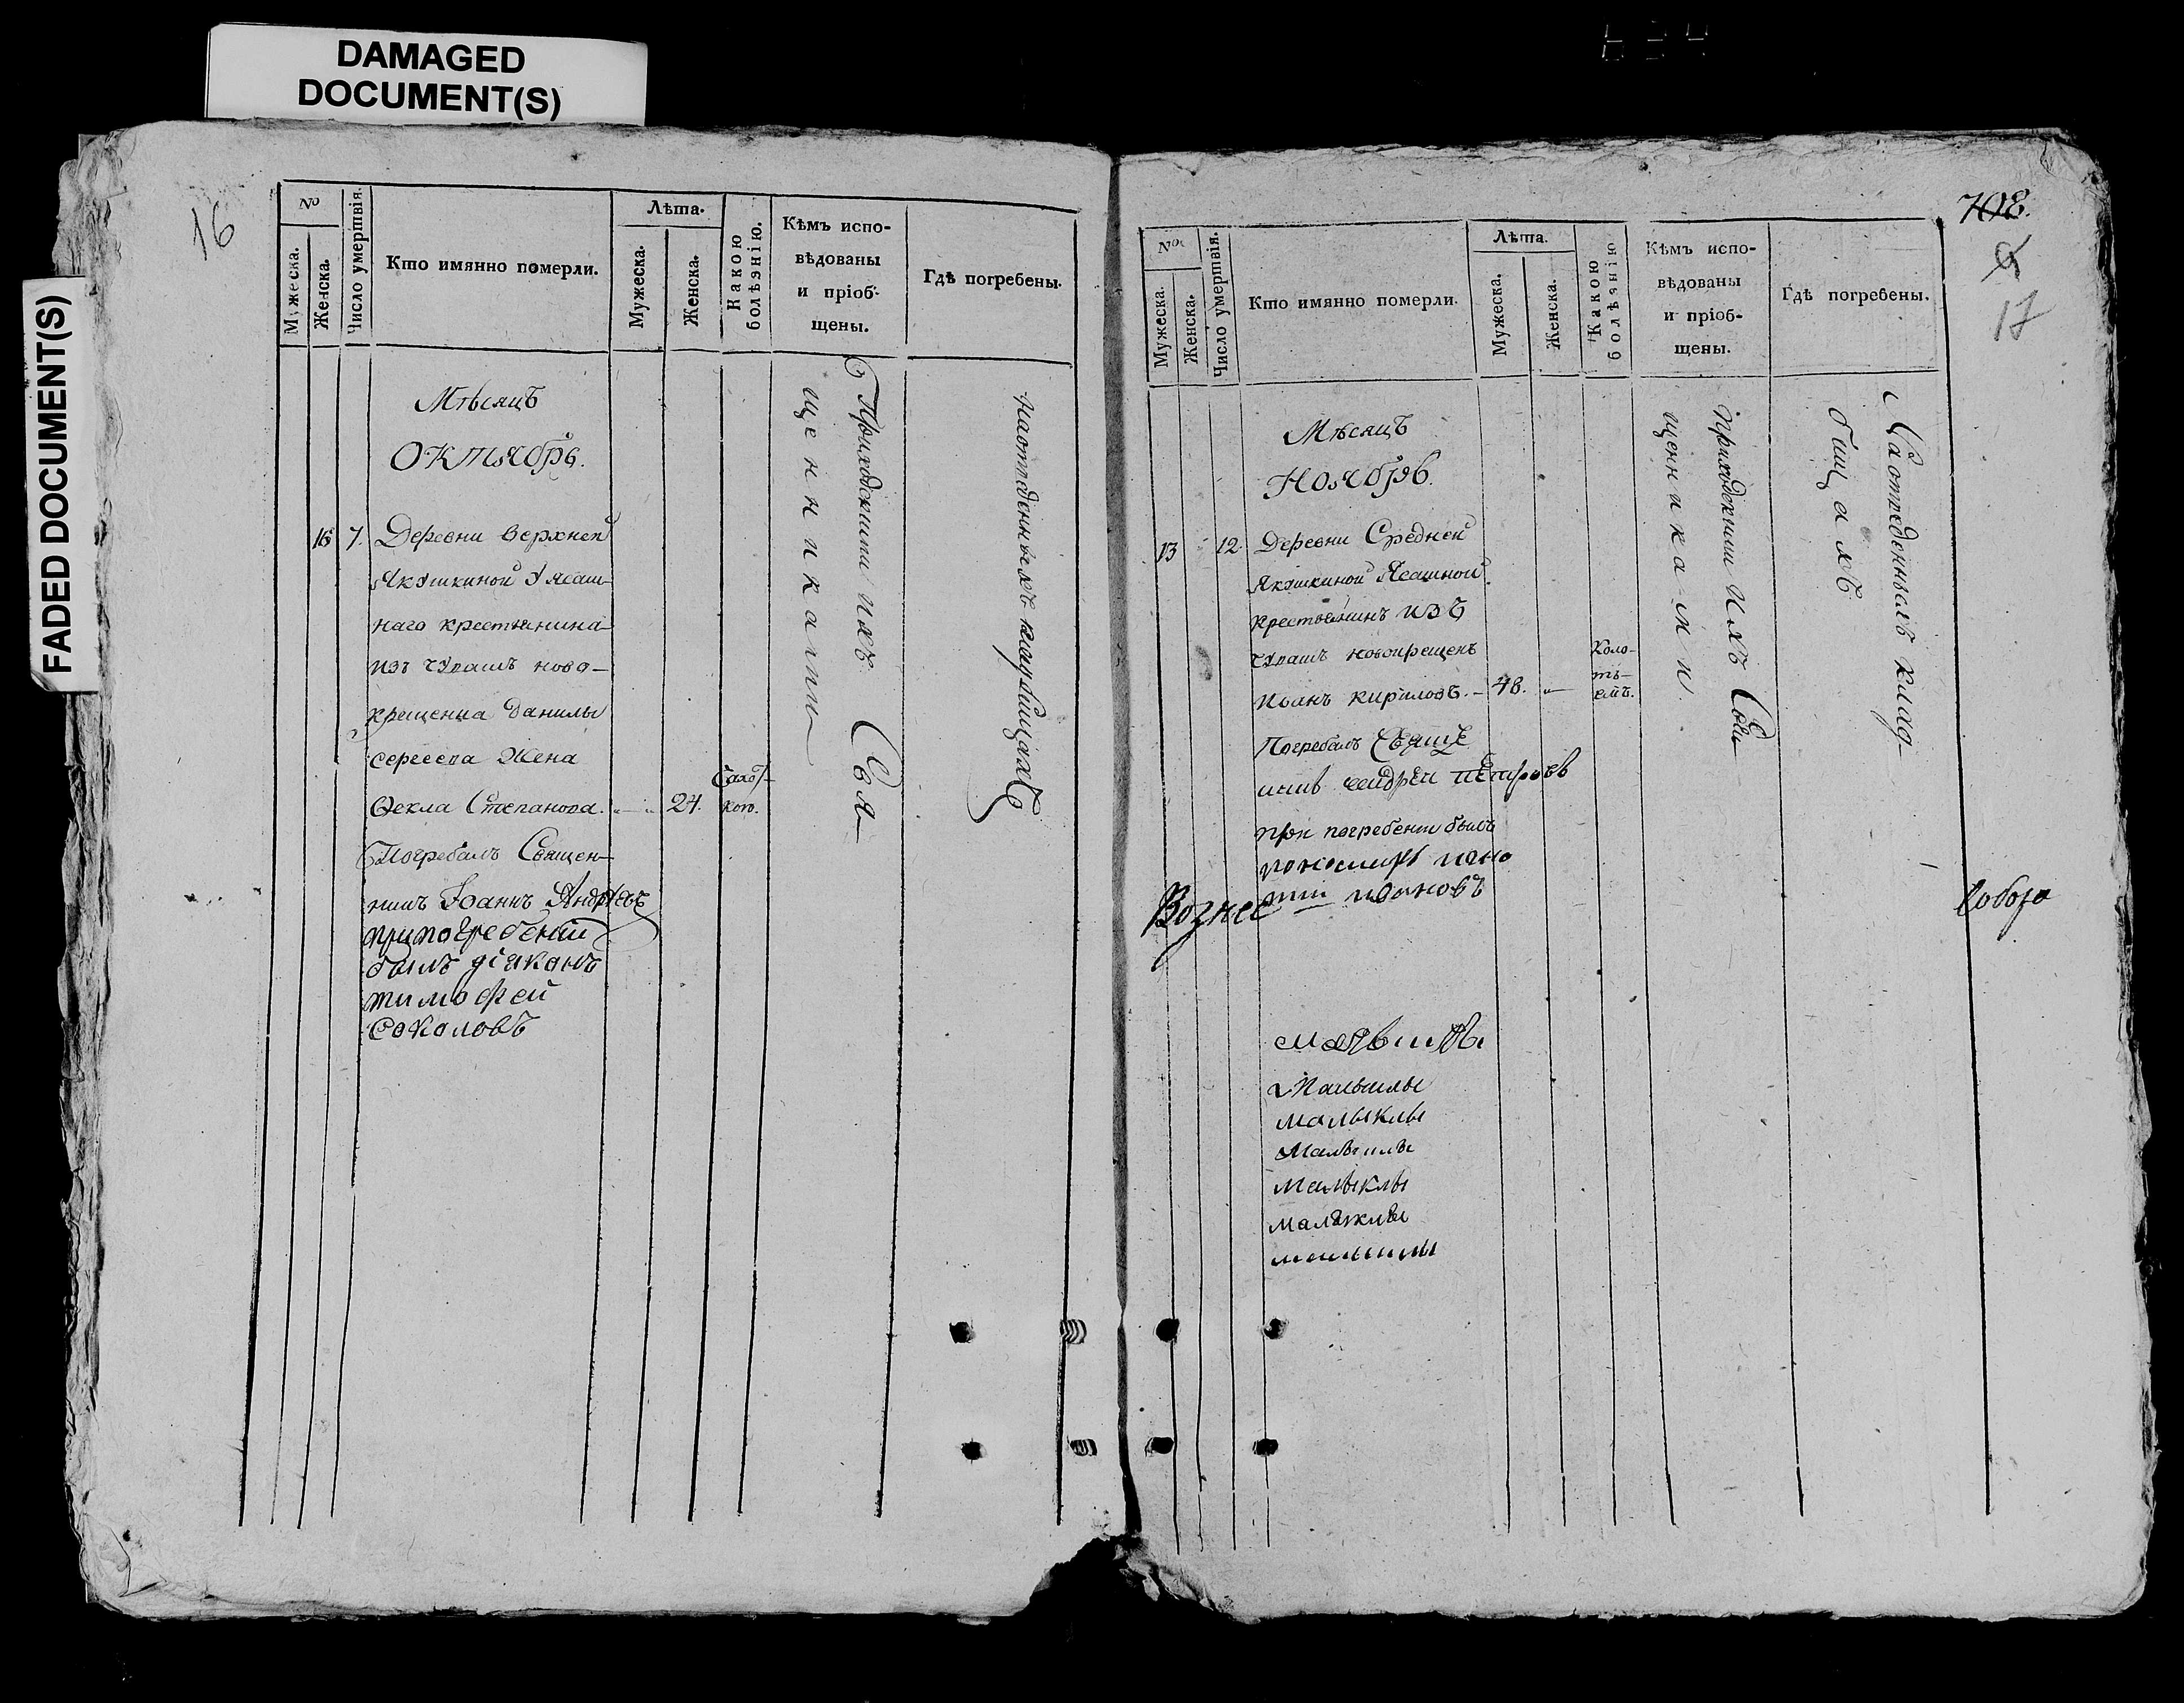 DAMAGED
DOCUMENT(S)
FADED DOCUMENT(S)
16
№
Мужеска.
Женска.
Число умертвія.
Кто имянно померли.
Лѣта.
Мужеска.
Женска.
Какою
болѣзнію.
Кѣмъ испо-
вѣдованы
и пріоб-
щены.
Гдѣ погребены.
Мѣсяцъ
Октябрь.
16 7. Деревни верхней
Якушкиной Ухсаш-
наго крестьянина
изъ чувашъ ново-
крещенца Данилы
сергеева Жена
Ѳекла Степанова. 24.
Погребалъ Священ-
никъ Іоаннъ Андрѣевъ
припогребеніи
былъ діяконъ
тимофей
соколовъ
Приходскими ихъ Свя-
щенниками
наотведенныхъ кладбищахъ
708.
17
№
Мужеска.
Женска.
Число умертвія.
Кто имянно померли.
Лѣта.
Мужеска.
Женска.
Какою
болѣзнію
Кѣмъ испо-
вѣдованы
и пріоб-
щены.
Гдѣ погребены.
Мѣсяцъ
Ноябрь.
13 12. Деревни Средней
Якушкиной Ясашной
крестьянинъ изъ
чувашъ новокрещенъ
Иванъ кириловъ. 48.
Коло-
ть-
емъ.
Погребалъ Свяще
андрей петровъ
при погребени былъ
ивановъ
Приходскими Ихъ Свя-
щенниками
Наотведенныхъ клад-
бищахъ
Вознесе
Собора
Малыклы
малыклы
Малыклы
Малыклы
малыклы